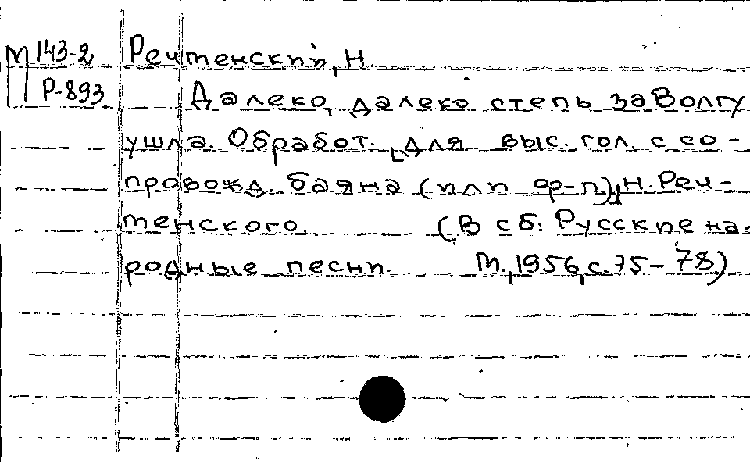 М 143-2 Речменский, Н.
Р-893 Далеко, далеко степь за Волгу
ушла. Обработ. [для выс. гол. с со-
провожд. баяна (или ф-п)] Н. Реч-
менского (В сб: Русские на-
родные песни. М., 1956, с. 75-78)